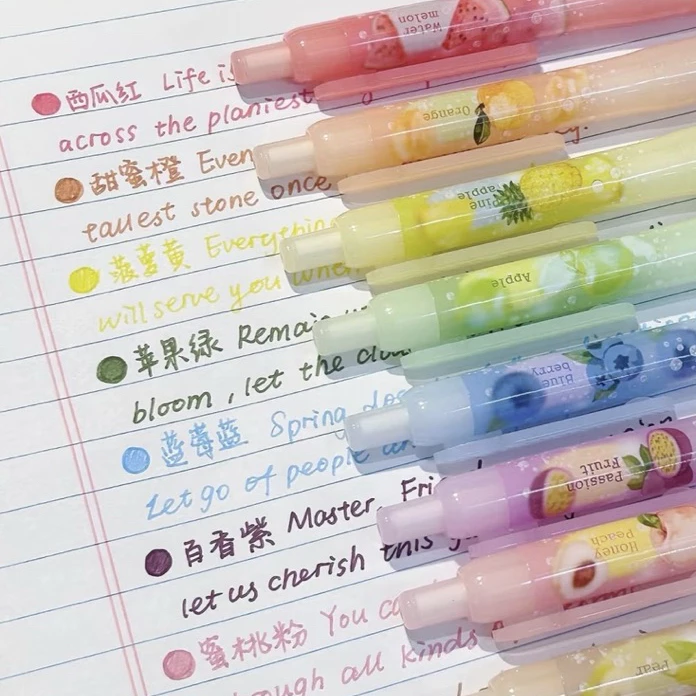 西瓜红 Life is
across the planiest
甜蜜橙 Even
tallest stone once
菠萝黄 Everything
will serve you when
苹果绿 Remain
bloom, let the
蓝莓蓝 Spring
Let go of people
百香紫 Master,
let us cherish this
蜜桃粉 You
all kinds
Water
melon
Orange
Pine
apple
Apple
Blue
berry
Passion
Fruit
Honey
Peach
Pear